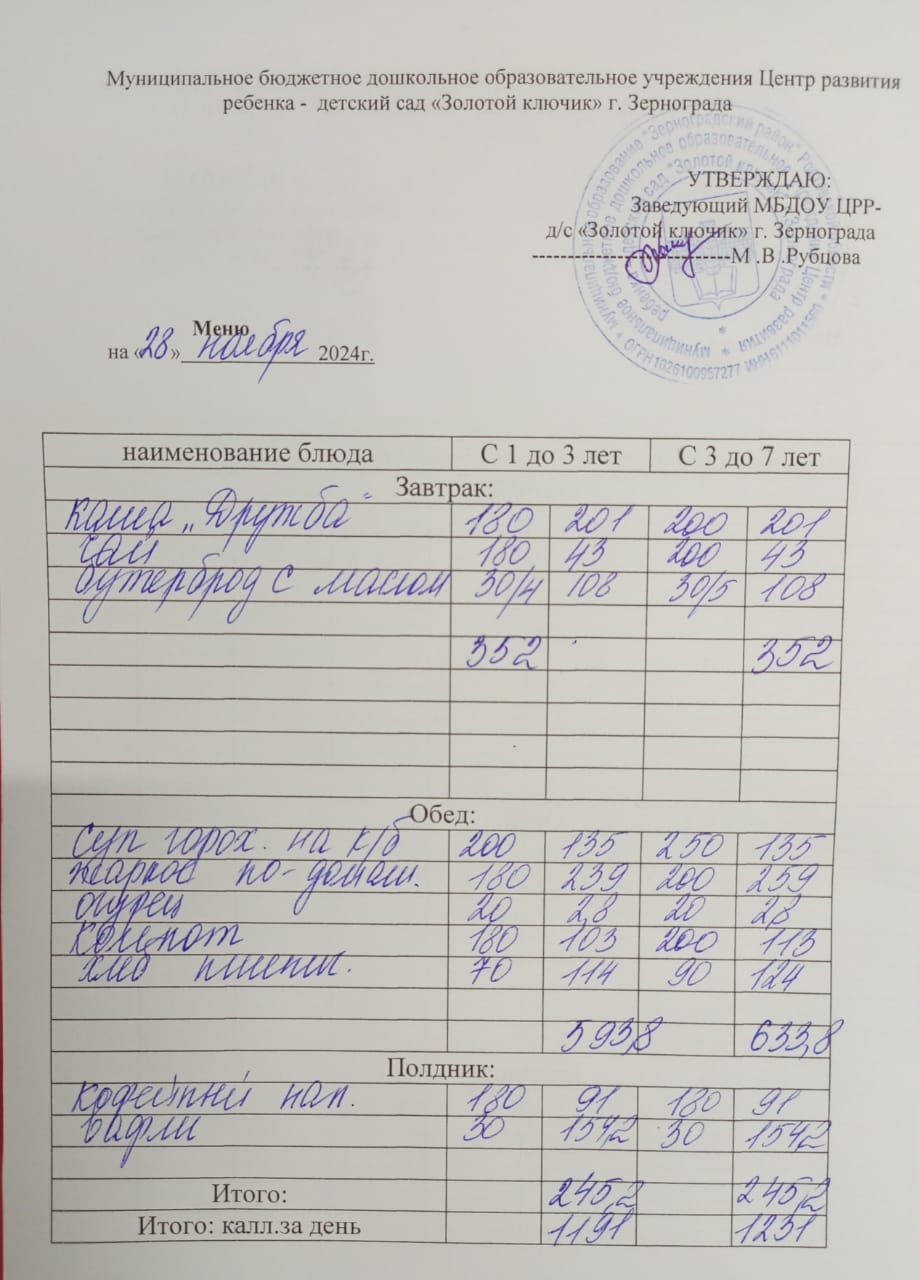 Муниципальное бюджетное дошкольное образовательное учреждения Центр развития
ребенка - детский сад «Золотой ключик» г. Зернограда
УТВЕРЖДАЮ:
Заведующий МБДОУ ЦРР-
д/с «Золотой ключик» г. Зернограда
----------------------------М .В .Рубцова
ОГРН 1026100957277 ИНН 6111011560
Меню
на «28» ноября 2024г.
наименование блюда С 1 до 3 лет С 3 до 7 лет
Завтрак:
каша „Дружба" 180 201 200 201
чай 180 43 200 43
бутерброд с маслом 30/4 108 30/5 108
352 352
Обед:
Суп горох. на к/б 200 135 250 135
жаркое по-домаш. 180 239 200 259
огурец 20 2,8 20 2,8
компот 180 103 200 113
хлеб пшенич. 70 114 90 124
593,8 633,8
Полдник:
кофейный нап. 180 91 180 91
вафли 30 154,2 30 154,2
Итого: 245,2 245,2
Итого: калл.за день 1191 1231